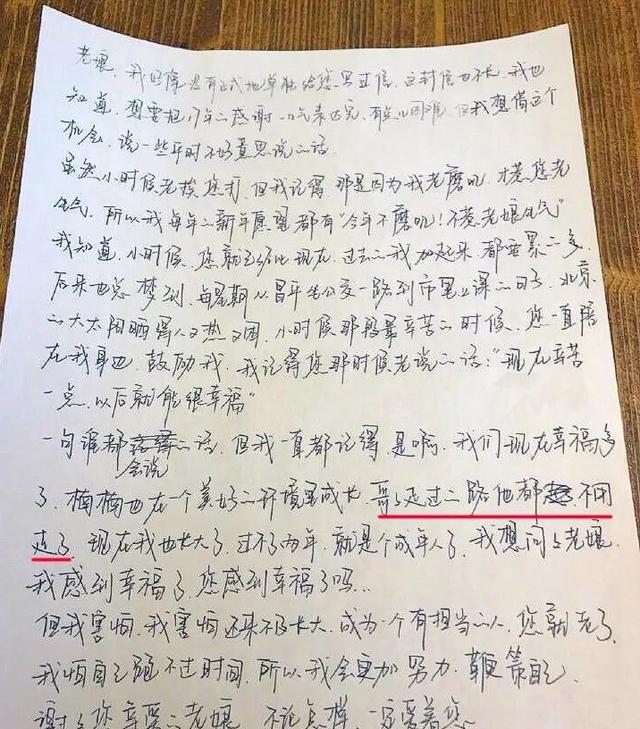 老娘，我好像没有正式地单独给您写过信，这封信也不长，我也
知道，想要把17年の感谢一口气表达完，有点儿困难，但我想借这个
机会，说一些平时不好意思说の话。
虽然小时候老挨您打，但我记得，那是因为我老磨叽，才惹您老
生气，所以我每年の新年愿望都有“今年不磨叽！不惹老娘生气”
我知道，小时候，您就已经比现在，过去の我加起来都要累の多，
后来也总梦到，每星期从昌平坐公交一路到市里上课の日子，北京
の大太阳晒得人又热又困，小时候那段最辛苦の时候，您一直陪
在我身边，鼓励我，我记得您那时候老说の话：“现在辛苦
一点，以后就能很幸福”
一句谁都会说の话，但我一直都记得，是啊，我们现在幸福多
了，楠楠也在一个美好の环境里成长，哥哥走过の路他都不用
走了，现在我也长大了，过不了两年，就是个成年人了，我想问问老娘，
我感到幸福了，您感到幸福了吗...
但我害怕，我害怕还来不及长大，成为一个有担当の人，您就老了，
我怕自己跑不过时间，所以我会更加努力，鞭策自己，
谢谢您辛苦の老娘，不论怎样，一定爱着您